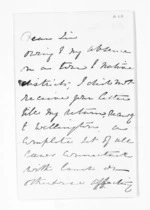 Dear Sir
Owing to my absence
on a tour of native
districts, I did not
receive your letters
till my return
to Wellington. a
complete set of all
Laws connected
with land or
otherwise affecting